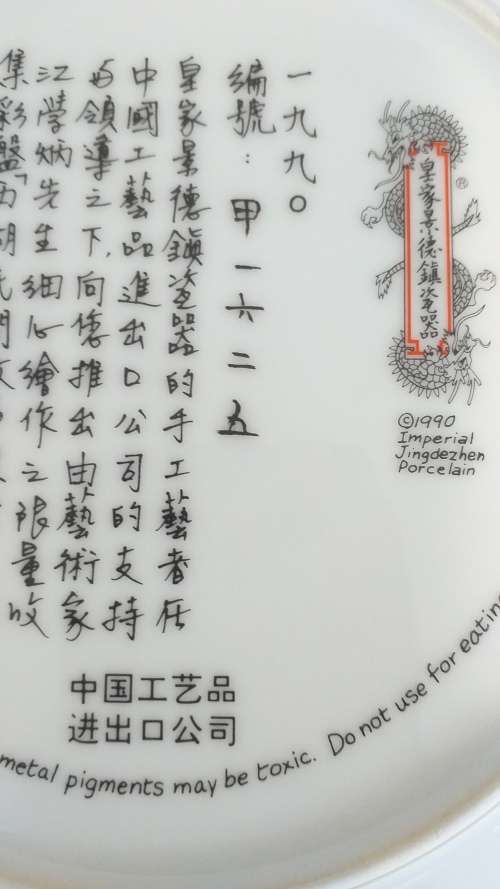 皇家景德鎮瓷器
®
©1990
Imperial
Jingdezhen
Porcelain
一九九〇
編號：甲一六二五
皇家景德鎮瓷器的手工藝者在
中國工藝品進出口公司的支持
与領導之下,向您推出由藝術家
江學炳先生細心繪作之限量收
集彩盤「西湖
中国工艺品
进出口公司
metal pigments may be toxic. Do not use for eating